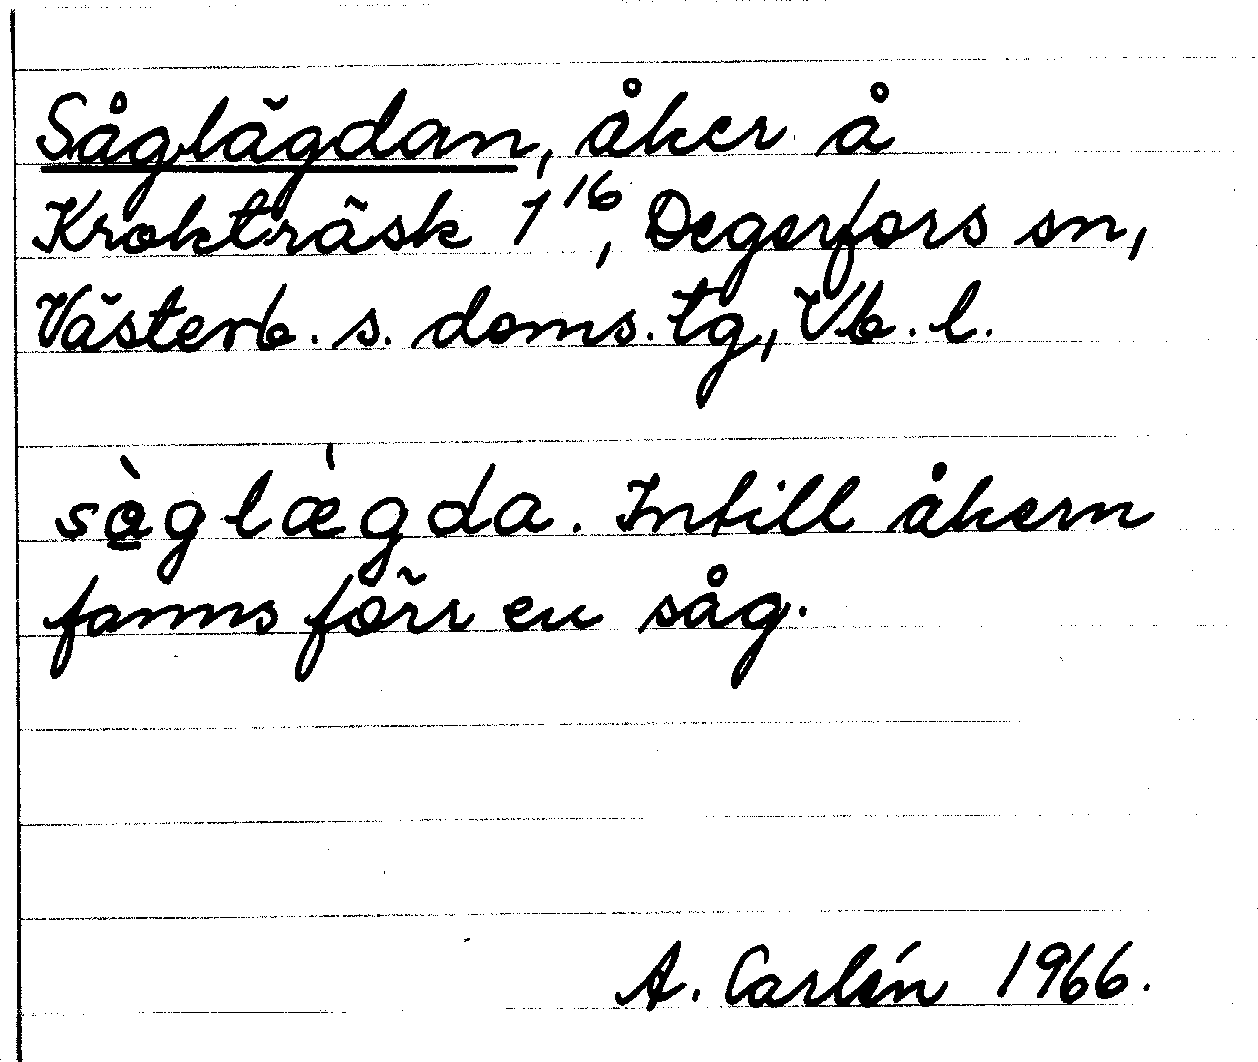 Såglägdan, åker å
Krokträsk 1¹⁶, Degerfors sn,
Västerb. s. doms. tg, Vb. l.
sà̲glæ̀gda. Intill åkern
fanns förr en såg.
A. Carlén 1966.